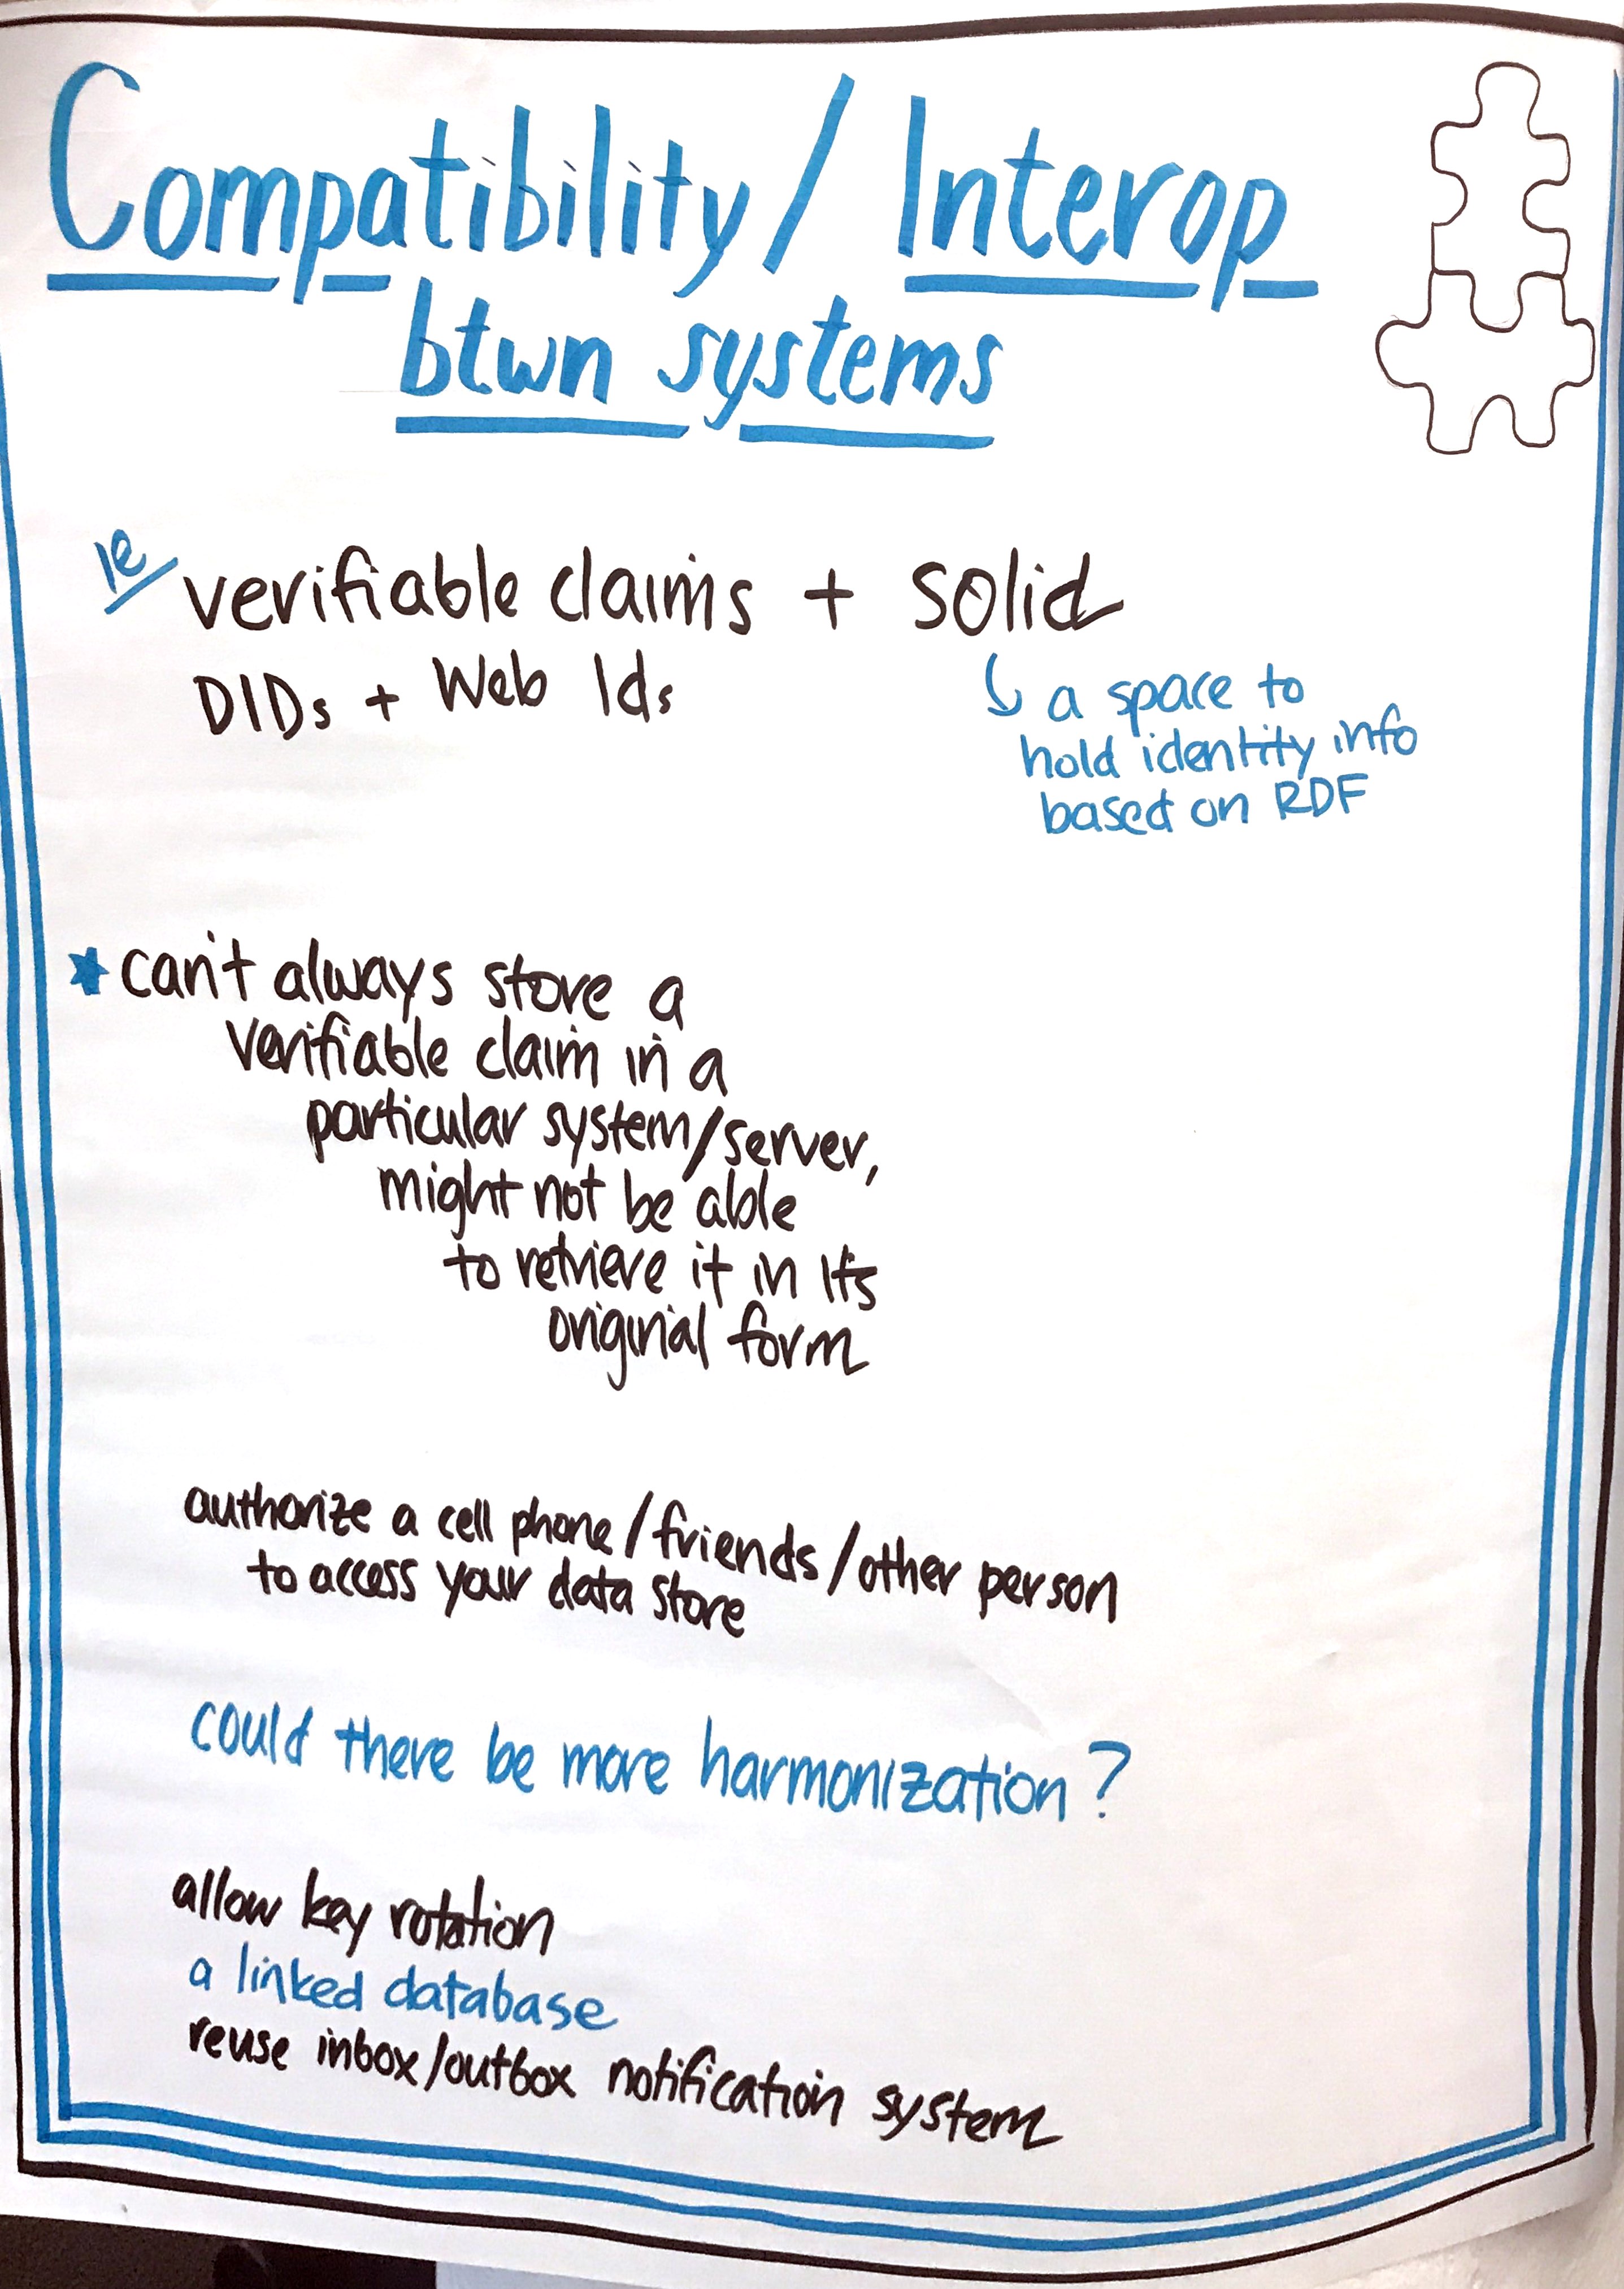 Compatibility / Interop
btwn systems
ie verifiable claims + solid
DIDs + Web Ids
a space to
hold identity info
based on RDF
can't always store a
verifiable claim in a
particular system/server,
might not be able
to retrieve it in its
original form
authorize a cell phone/friends/other person
to access your data store
could there be more harmonization?
allow key rotation
a linked database
reuse inbox/outbox notification system